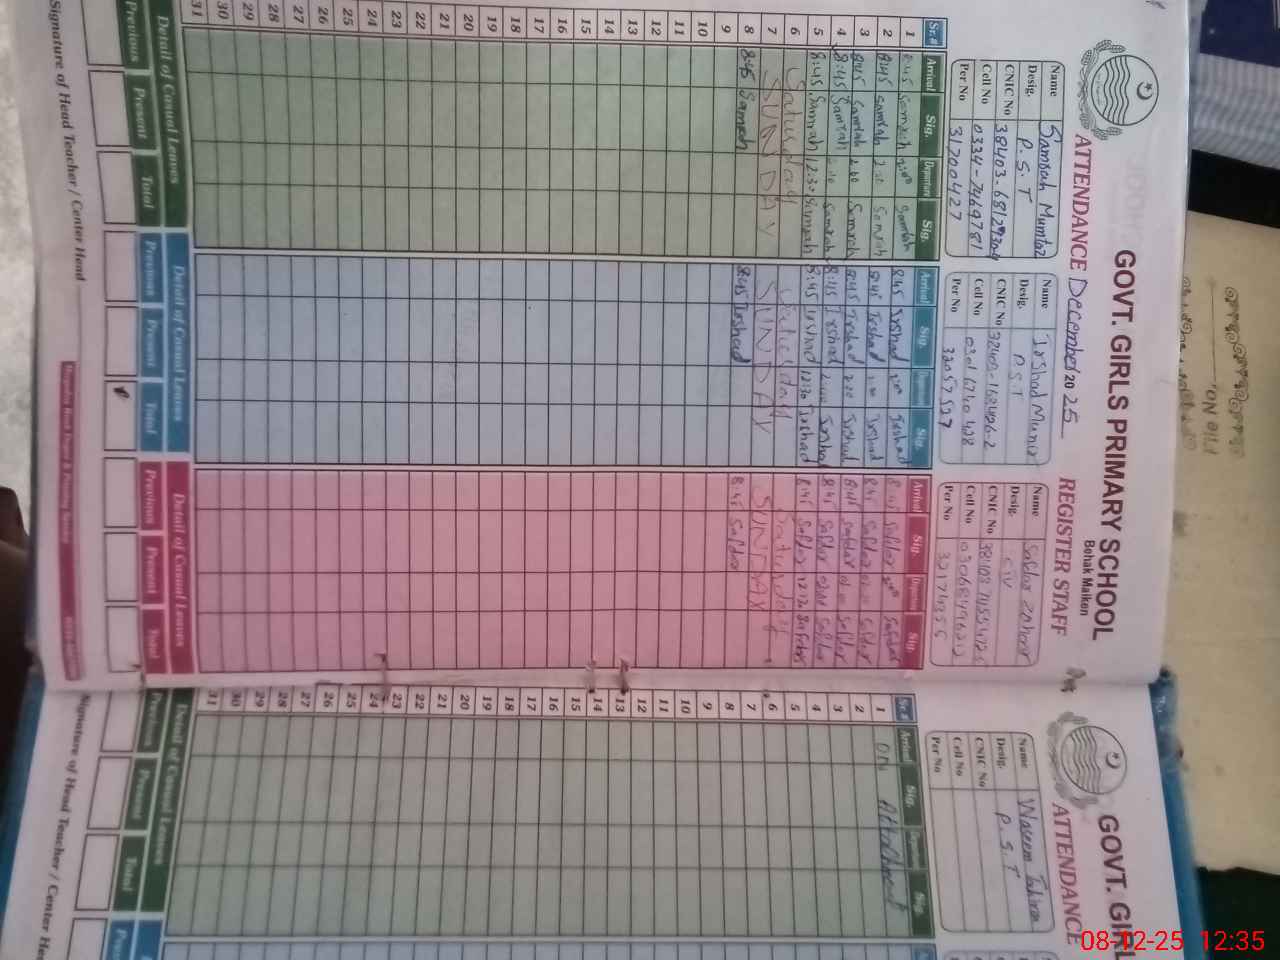 GOVT. GIRLS PRIMARY SCHOOL
Behak Maiken
ATTENDANCE December 2025 REGISTER STAFF
Name Samrah Mumtaz
Desig. P.S.T
CNIC No
Cell No 0334-7469781
Per No 31700427
Name Irshad Munir
Desig. P.S.T
CNIC No
Cell No
Per No
Name Safdar
Desig.
CNIC No
Cell No
Per No
Sr.# Arrival Sig. Departure Sig. Arrival Sig. Departure Sig. Arrival Sig. Departure Sig.
1 8:45 Samrah 2:00 Samrah 8:45 Irshad 2:00 Irshad 8:45 Safdar 2:00 Safdar
2 8:45 Samrah 2:00 Samrah 8:45 Irshad 2:00 Irshad 8:45 Safdar Safdar
3 8:45 Samrah 2:00 Samrah 8:45 Irshad 2:00 Irshad 8:45 Safdar Safdar
4 8:45 Samrah Samrah 8:45 Irshad 2:00 Irshad 8:45 Safdar Safdar
5 8:45 Samrah 12:30 Samrah 8:45 Irshad 12:30 Irshad 8:45 Safdar
6 Saturday Saturday Saturday
7 SUNDAY SUNDAY SUNDAY
8 8:45 Samrah 8:45 Irshad 8:45 Safdar
9
10
11
12
13
14
15
16
17
18
19
20
21
22
23
24
25
26
27
28
29
30
31
Detail of Casual Leaves Detail of Casual Leaves Detail of Casual Leaves
Previous Present Total Previous Present Total Previous Present Total
Signature of Head Teacher / Center Head
GOVT. GIRL
ATTENDANCE
Name Waseem
Desig. P.S.T
CNIC No
Cell No
Per No
Sr.# Arrival Sig. Departure Sig.
1 On Attachment
2
3
4
5
6
7
8
9
10
11
12
13
14
15
16
17
18
19
20
21
22
23
24
25
26
27
28
29
30
31
Detail of Casual Leaves
Previous Present Total
Signature of Head Teacher / Center He
FILE NO.
08-12-25 12:35